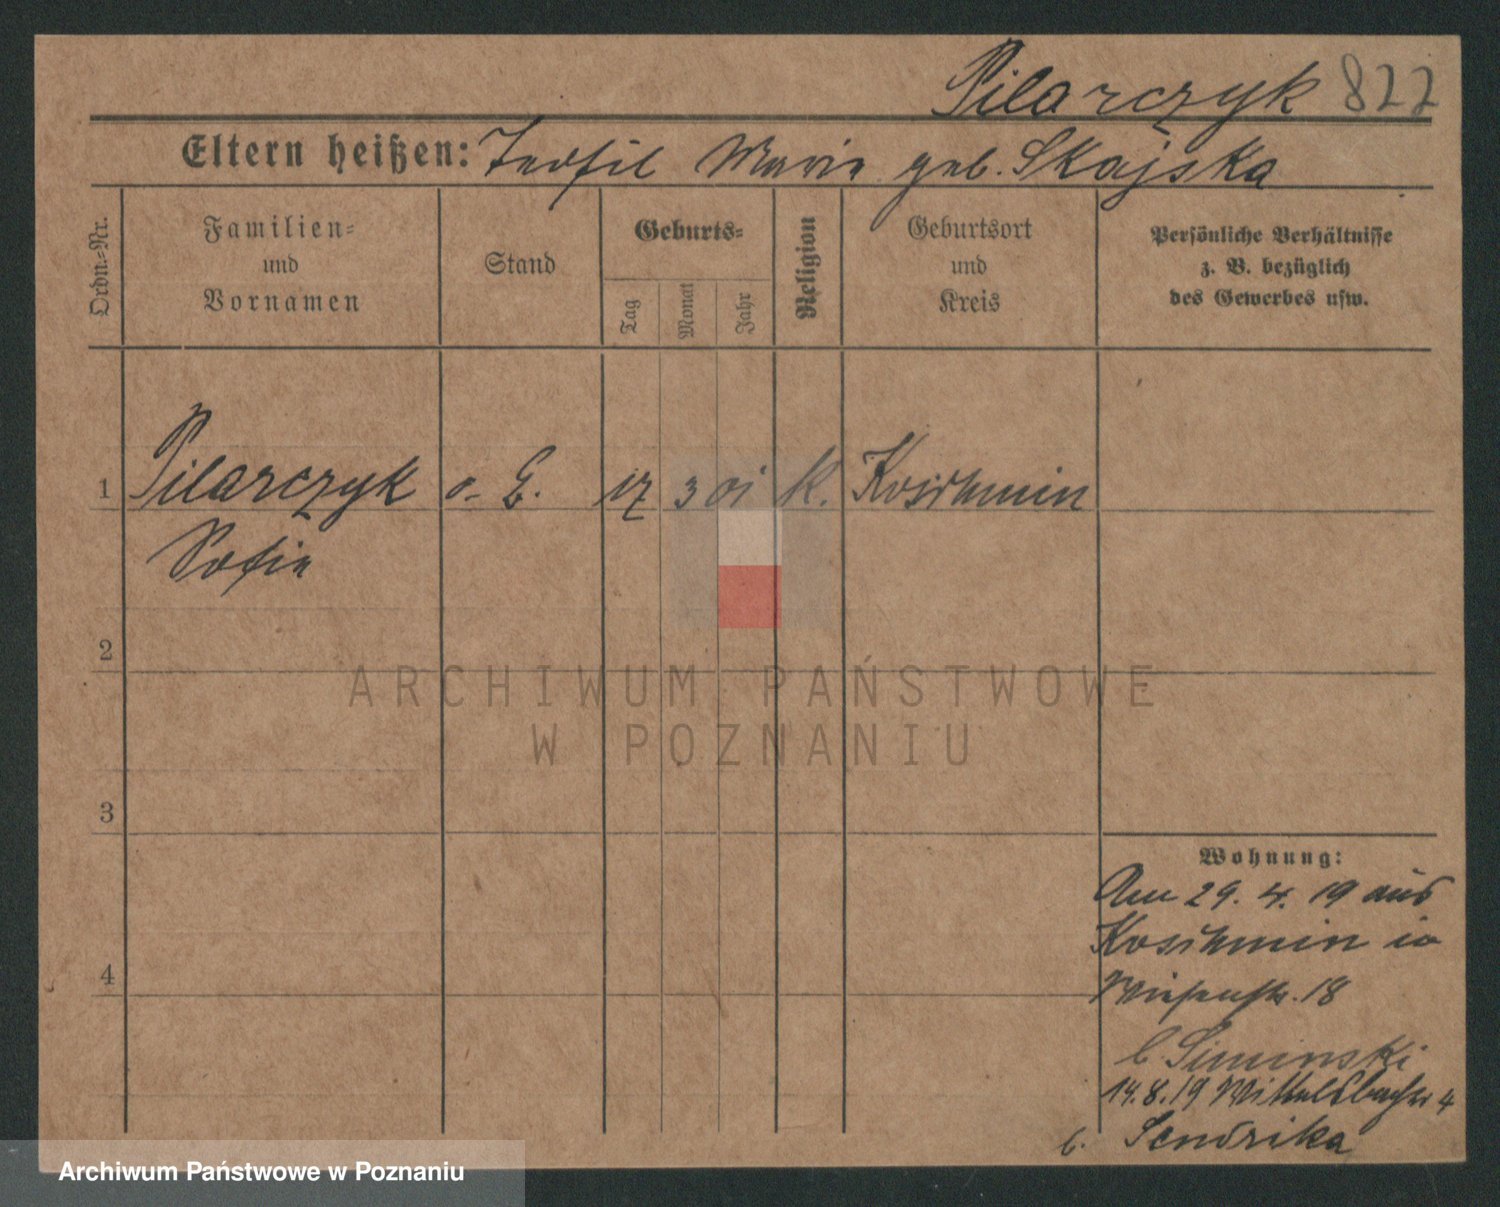 Pilarczyk 822
Eltern heißen: Teofil Marie geb. Skajska
Ordn.-Nr.
Familien-
und
Vornamen
Stand
Geburts-
Tag
Monat
Jahr
Religion
Geburtsort
und
Kreis
Persönliche Verhältnisse
z. B. bezüglich
des Gewerbes usw.
1 Pilarczyk o. G. 17 3 01 K. Koschmin
Sofie
2
ARCHIWUM PAŃSTWOWE
W POZNANIU
3
Wohnung:
Am 29. 4. 19 aus
Koschmin in
4
Wiesenstr. 18
b. Siminski
14.8.19 Wittelsbacherstr 4
b. Sendrika
Archiwum Państwowe w Poznaniu